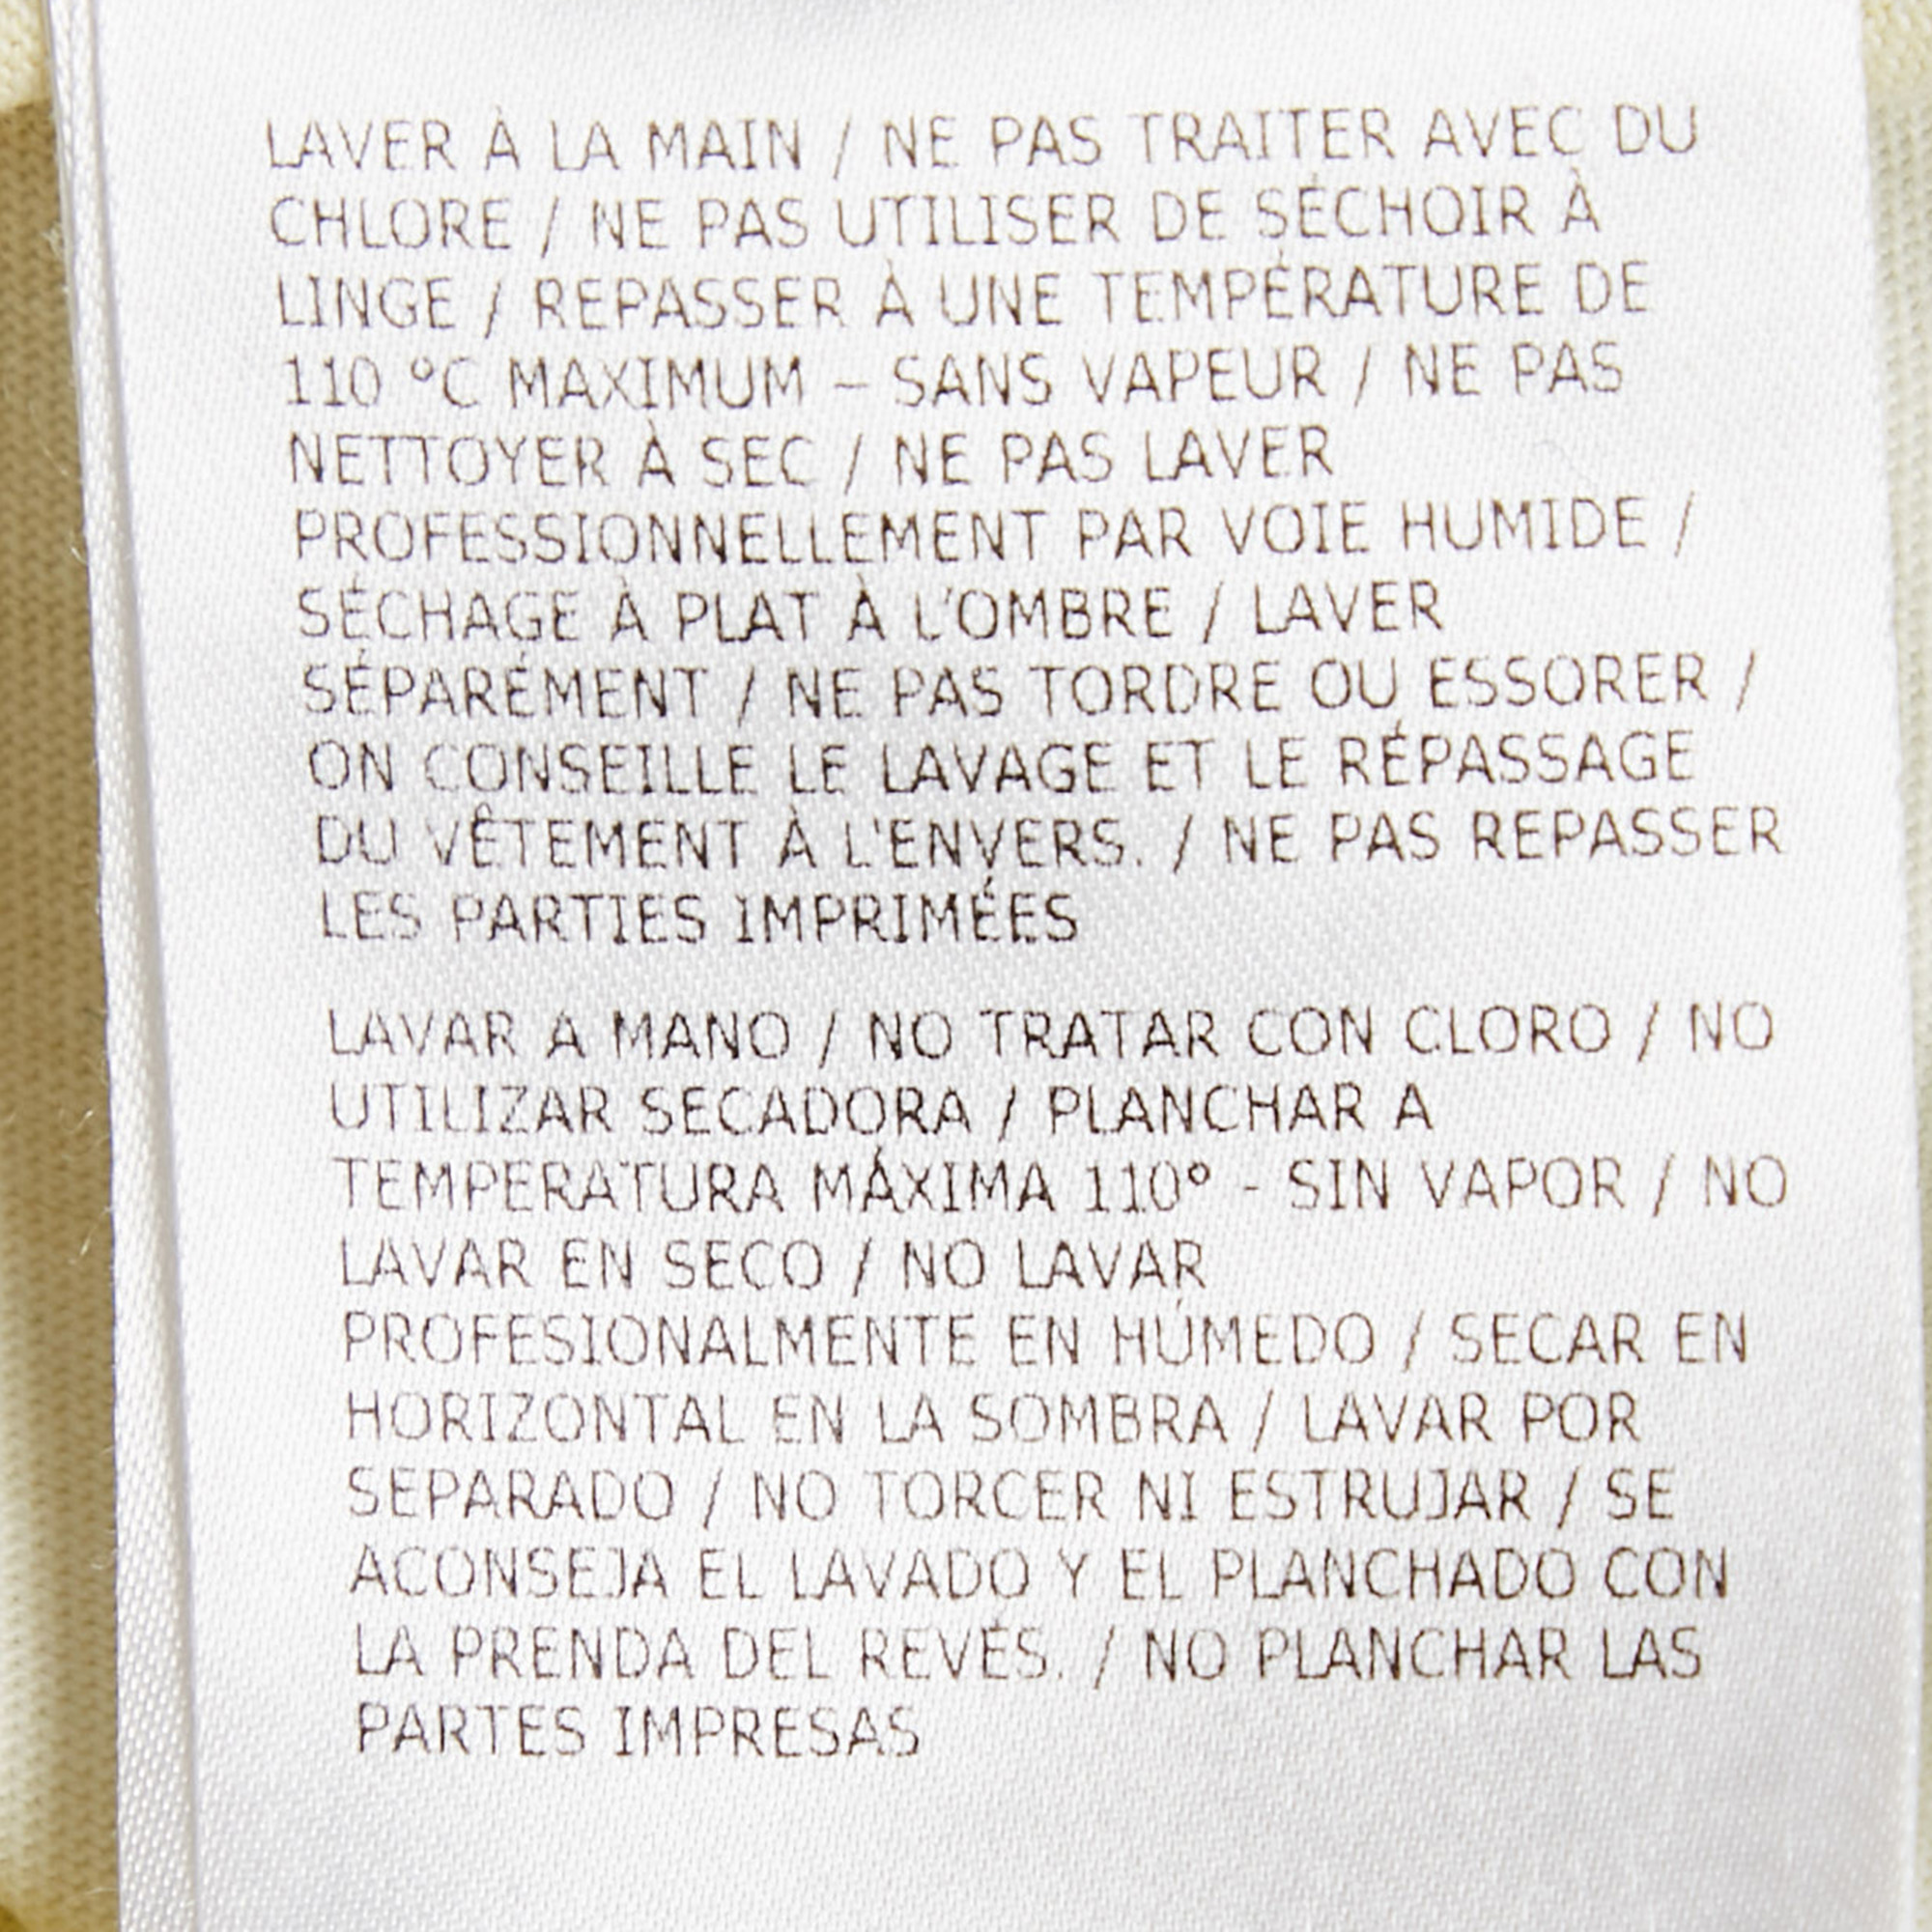 LAVER À LA MAIN / NE PAS TRAITER AVEC DU
CHLORE / NE PAS UTILISER DE SÉCHOIR À
LINGE / REPASSER À UNE TEMPÉRATURE DE
110 °C MAXIMUM – SANS VAPEUR / NE PAS
NETTOYER À SEC / NE PAS LAVER
PROFESSIONNELLEMENT PAR VOIE HUMIDE /
SÉCHAGE À PLAT À L'OMBRE / LAVER
SÉPARÉMENT / NE PAS TORDRE OU ESSORER /
ON CONSEILLE LE LAVAGE ET LE RÉPASSAGE
DU VÊTEMENT À L'ENVERS. / NE PAS REPASSER
LES PARTIES IMPRIMÉES
LAVAR A MANO / NO TRATAR CON CLORO / NO
UTILIZAR SECADORA / PLANCHAR A
TEMPERATURA MÁXIMA 110° - SIN VAPOR / NO
LAVAR EN SECO / NO LAVAR
PROFESIONALMENTE EN HÚMEDO / SECAR EN
HORIZONTAL EN LA SOMBRA / LAVAR POR
SEPARADO / NO TORCER NI ESTRUJAR / SE
ACONSEJA EL LAVADO Y EL PLANCHADO CON
LA PRENDA DEL REVÉS. / NO PLANCHAR LAS
PARTES IMPRESAS